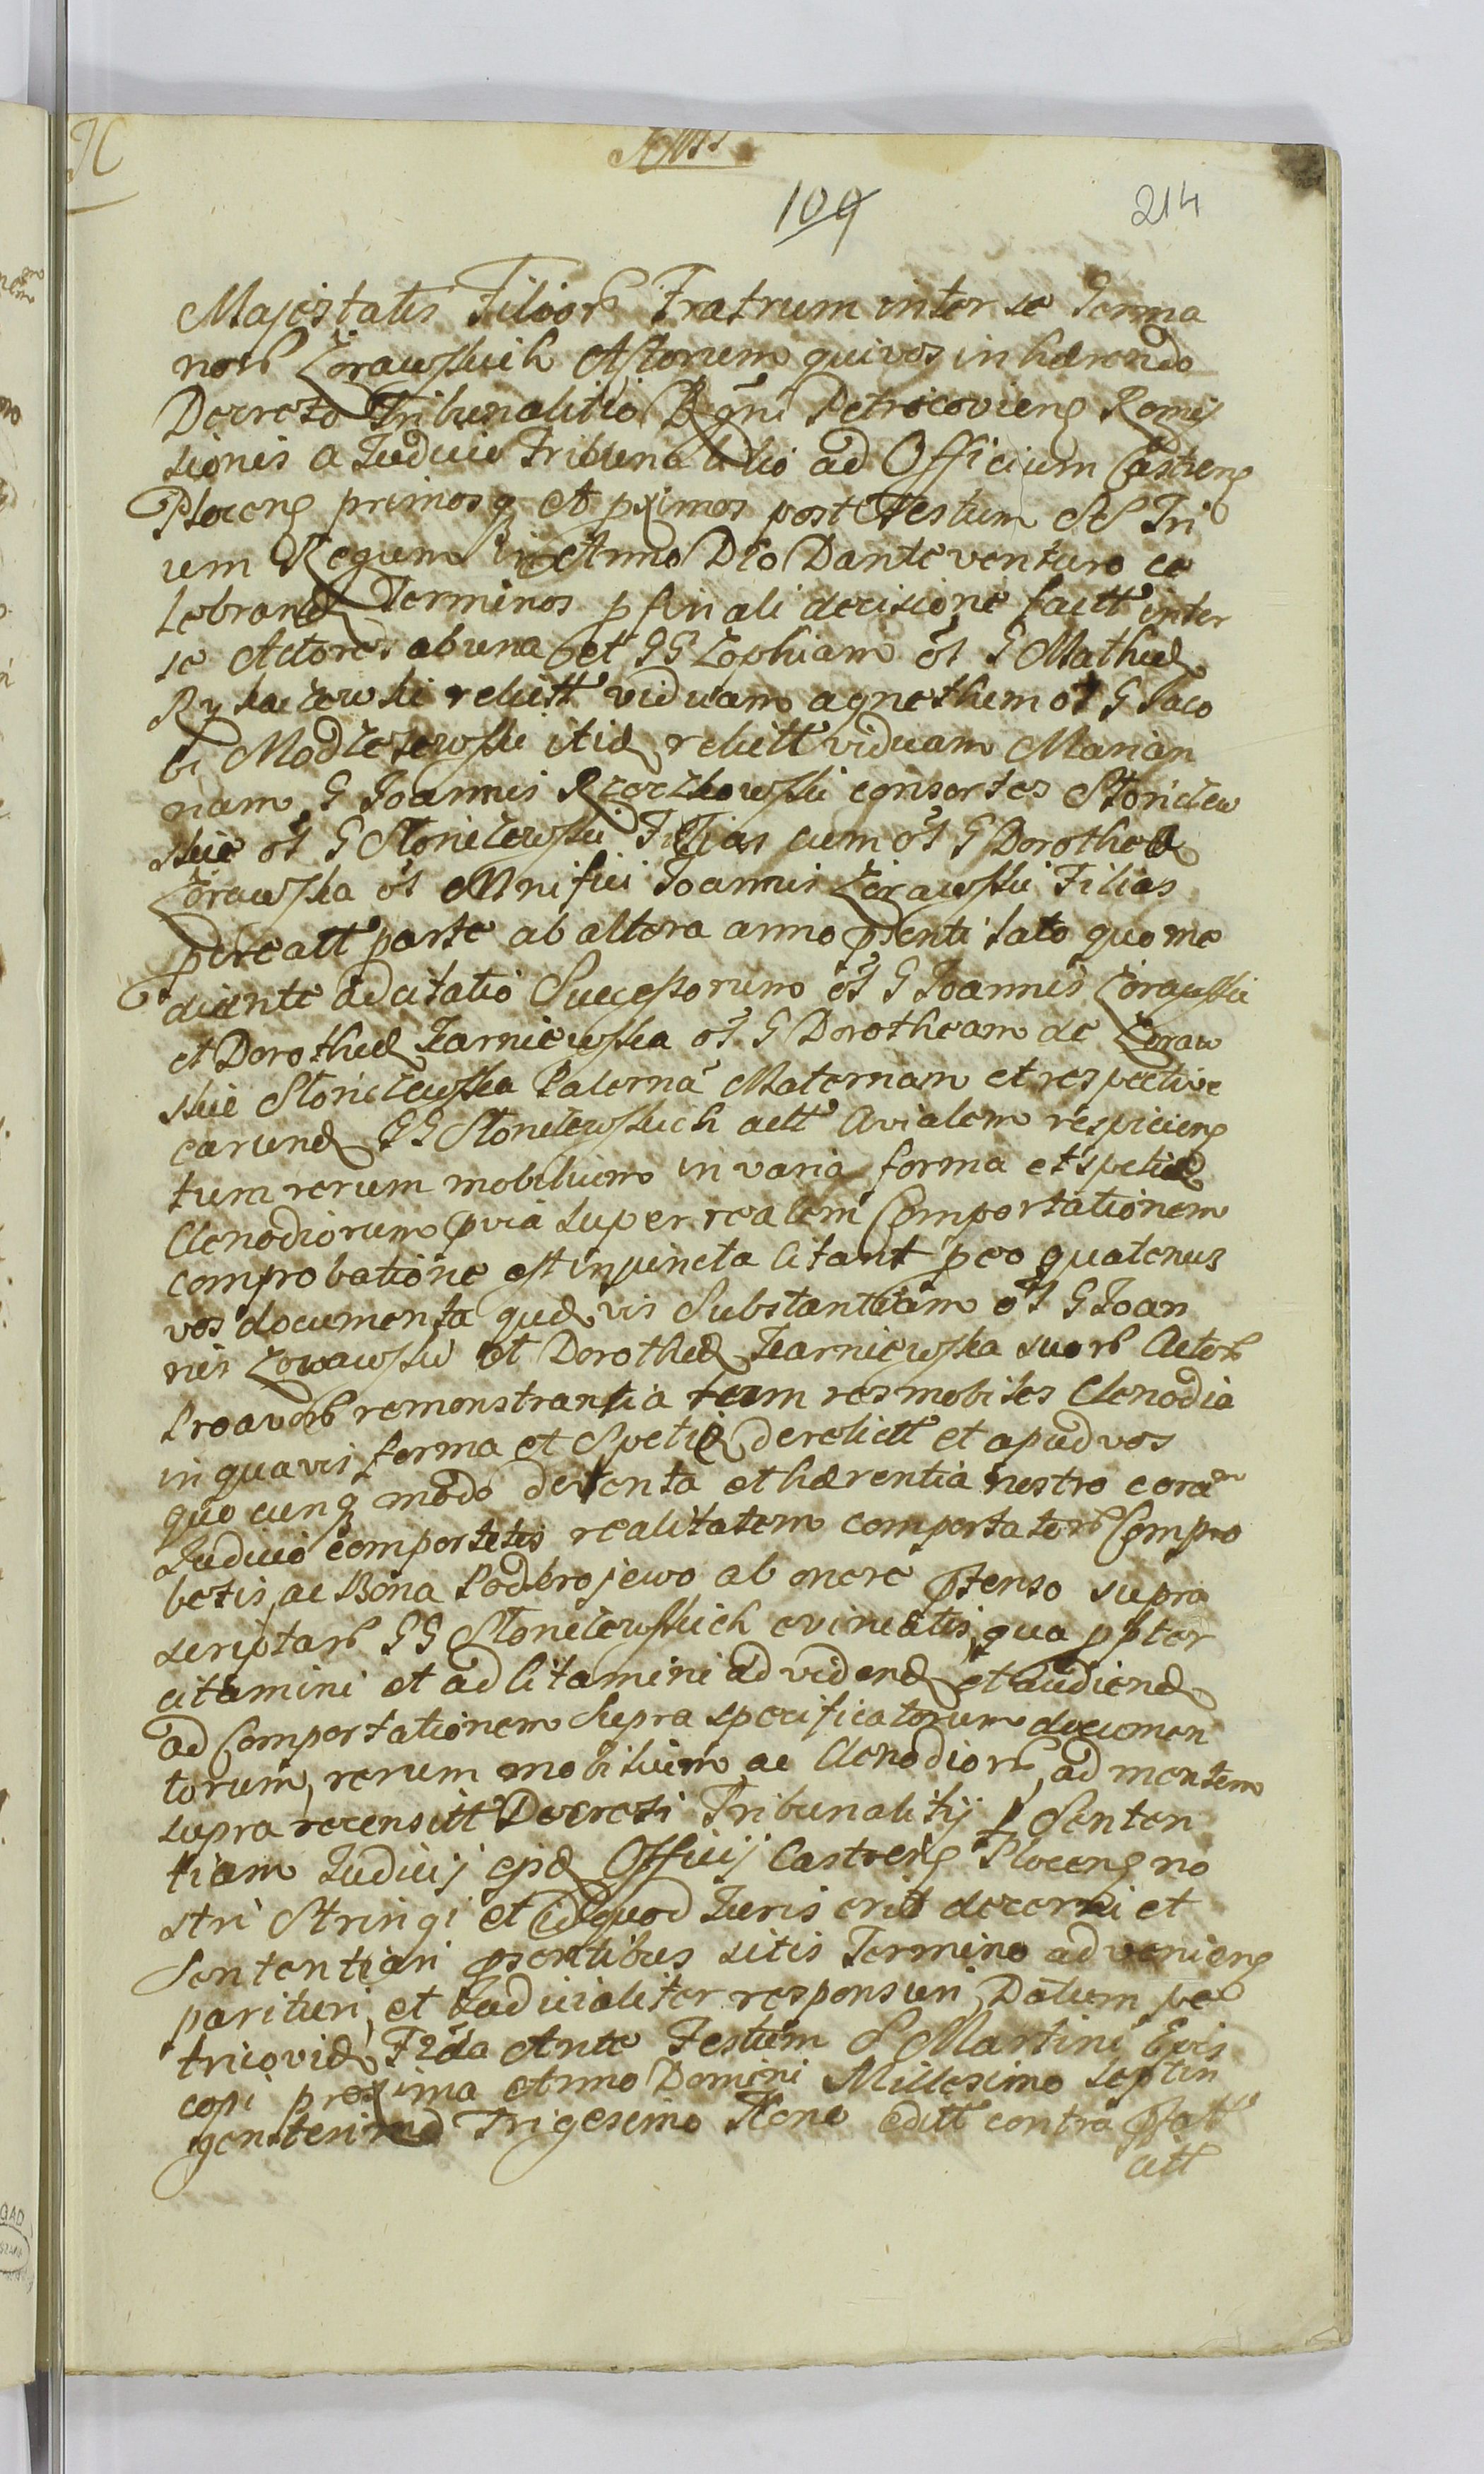 109
214
Majestatis Filiorb Fratrum inter se Germa
norb Zorawskich Actorum qui vos in hærendo
Decreto Tribunalitio Rgni Petricoviens Remis
sionis a Judicio Tribunalitio ad Officium Castrens
Plocens primosq et pximos post Festum SS Tri
um Regum in Anno Dno Dante venturo ce
lebrand Terminos p finali decisione factt inter
se Actores ab una et GG Zophiam ol G Mathiæ
Rykaczewski relictt viduam agnethem ol G Jaco
bi Modlezewski itid relictt viduam Marian
nam G Joannis Rzeczkowski consortes Skonczew
skie ol G Skonczewski Filias cum ol G Dorothea
Zorawska ol Mnifici Joannis Zorawski Filias
pcreatt parte ab altera anno psenti lato quo me
diante adcitatio Successorum ol G Joannis Zorawski
et Dorotheæ Karniewska ol G Dorotheam de Zoraw
skie Skonczewska Paterna Maternam et respective
earund GG Skonczewskich actt Avialem respiciens
tum rerum mobilium in varia forma et spetie
Clenodiorum pvia super realem Comportationem
comprobatione est injuncta citant peo quatenus
vos documenta quævis Substantiam ol G Joan
nis Zorawski et Dorotheæ Karniewska suorb Actorb
Proavorb remonstrantia tum res mobiles Clenodia
in quavis forma et Spetie derelictt et apud vos
quo cunq modo detenta et hærentia nostro coram
Judicio comportetis realitatem comportatorb Compro
betis, ac Bona Podkrajewo ab onere ptenso supra
scriptarb GG Skonczewskich evincatis, qua ppter
citamini et ad citamini ad vidend et audiend
ad Comportationem Supra specificatorum documen
torum, rerum mobilium ac Clenodiorb, ad mentem
supra recensitt Decreti Tribunalitij p Senten
tiam Judicij ejsd Officij Castrens Plocens no
stri Stringi et id quod Juris erit decerni et
Sententiari psentibus sitis Termino adveniens
parituri, et Judicialiter responsuri, Datum Pe
tricoviæ Frida Ante Festum S Martini Epis
copi proxima Anno Domini Millesimo Septin
gentesimo Trigesimo Nono Editt contra pfat
citt